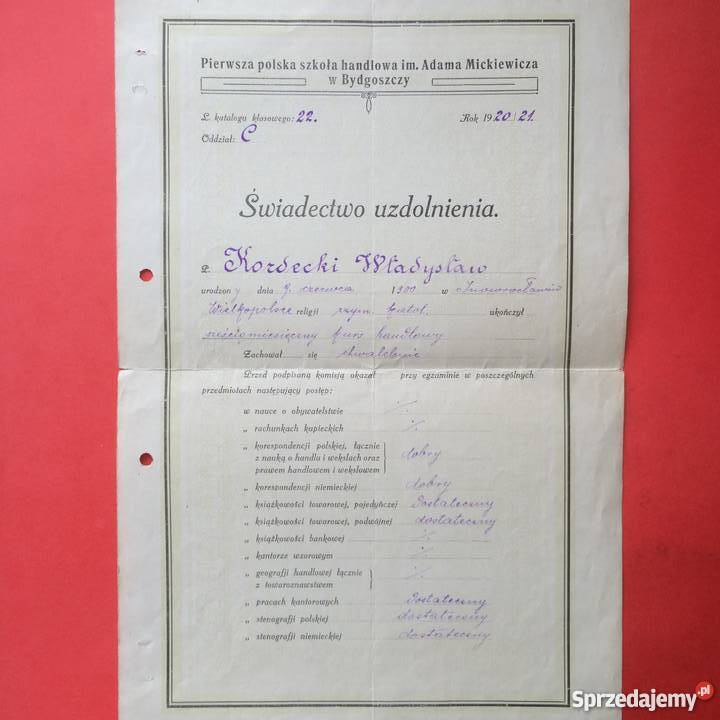 Pierwsza polska szkoła handlowa im. Adama Mickiewicza
w Bydgoszczy
L. katalogu klasowego: 22. Rok 1920/21.
Oddział: C
Świadectwo uzdolnienia.
P. Kordecki Władysław
urodzony dnia 9. czerwca 1900 w Inowrocławiu
Wielkopolsce religji rzym. katol. ukończył
sześciomiesięczny kurs handlowy
Zachował się chwalebnie
Przed podpisaną komisją okazał przy egzaminie w poszczególnych
przedmiotach następujący postęp:
w nauce o obywatelstwie ./.
„ rachunkach kupieckich ./.
„ korespondencji polskiej, łącznie
z nauką o handlu i wekslach oraz dobry
prawem handlowem i wekslowem
„ korespondencji niemieckiej dobry
„ książkowości towarowej, pojedyńczej dostateczny
„ książkowości towarowej, podwójnej dostateczny
„ książkowości bankowej ./.
„ kantorze wzorowym ./.
„ geografji handlowej łącznie ./.
z towaroznawstwem
„ pracach kantorowych dostateczny
„ stenografji polskiej dostateczny
„ stenografji niemieckiej dostateczny
Sprzedajemy.pl